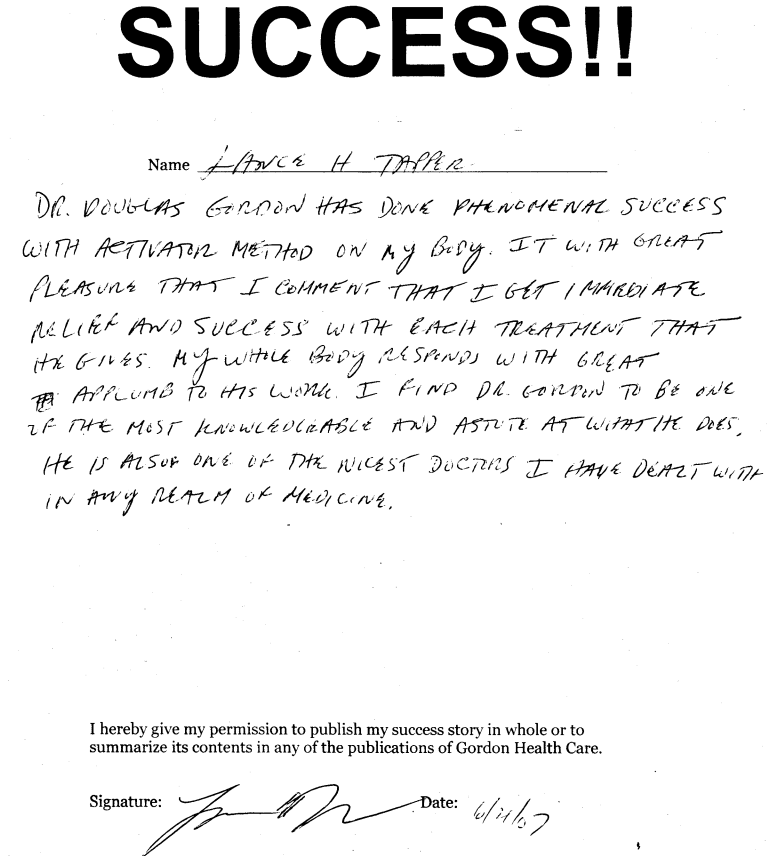 SUCCESS!!
Name LANCE H TAPPER
DR. DOUGLAS GORDON HAS DONE PHENOMENAL SUCCESS
WITH ACTIVATOR METHOD ON MY BODY. IT WITH GREAT
PLEASURE THAT I COMMENT THAT I GET IMMEDIATE
RELIEF AND SUCCESS WITH EACH TREATMENT THAT
HE GIVES. MY WHOLE BODY RESPONDS WITH GREAT
APPLUMB TO HIS WORK. I FIND DR. GORDON TO BE ONE
IF THE MOST KNOWLEDGEABLE AND ASTUTE AT WHAT HE DOES.
HE IS ALSO ONE OF THE NICEST DOCTORS I HAVE DEALT WITH
IN ANY REALM OF MEDICINE.
I hereby give my permission to publish my success story in whole or to
summarize its contents in any of the publications of Gordon Health Care.
Signature: Date: